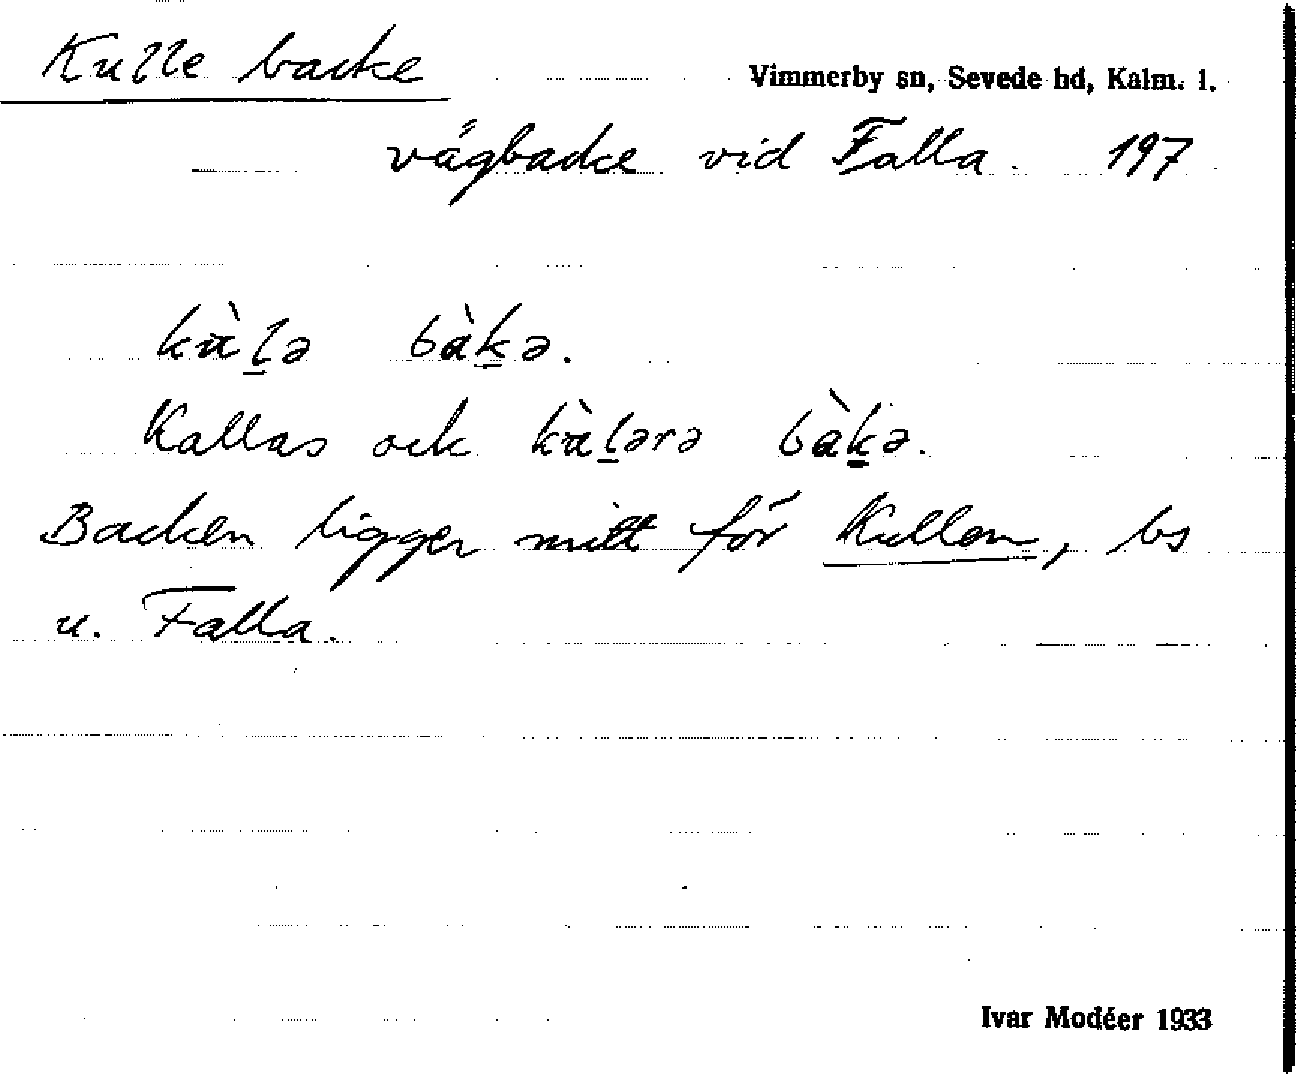 Kulle backe
Vimmerby sn, Sevede hd, Kalm. l.
vägbacke vid Falla. 197
kù̀l̠ə bàk̠ə.
Kallas ock kùl̠ərə bàk̠ə.
Backen ligger mitt för Kullen, ls
u. Falla.
Ivar Modéer 1933